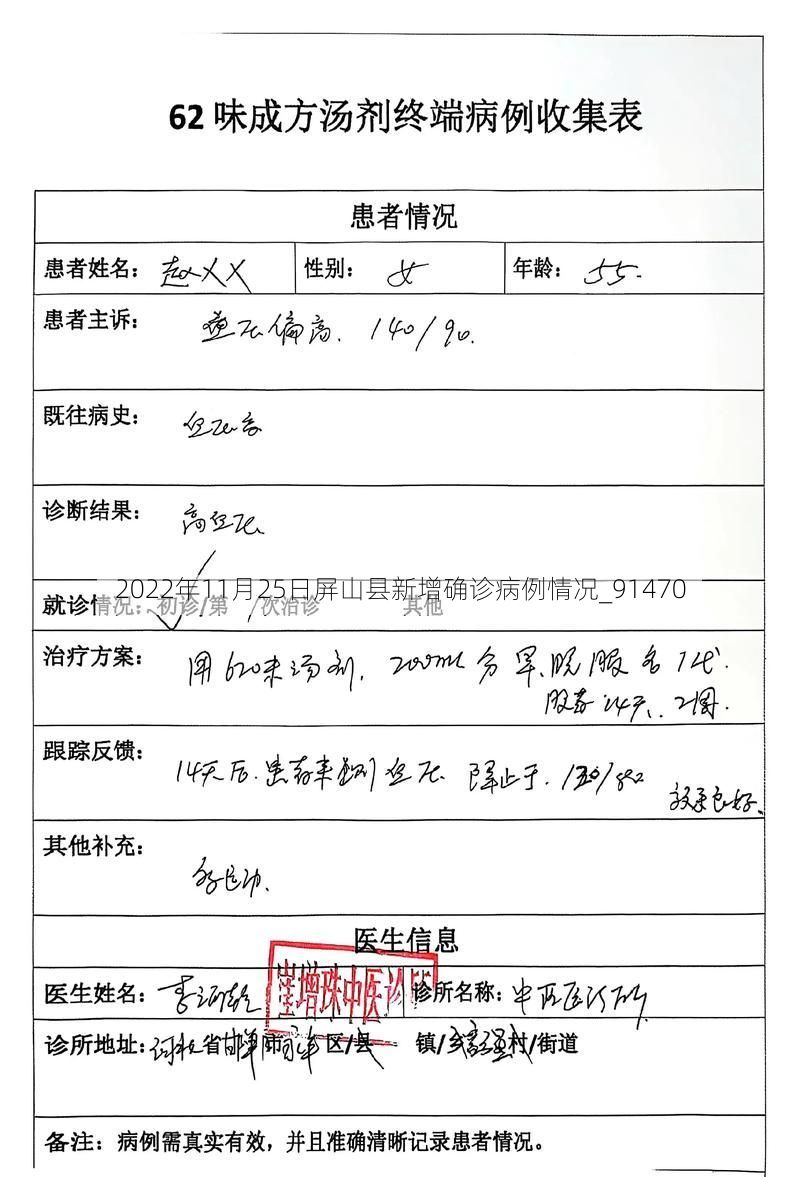 62 味成方汤剂终端病例收集表
患者情况
患者姓名： 赵XX 性别： 女 年龄： 55.
患者主诉： 血压偏高. 140/90.
既往病史： 血压高
诊断结果： 高血压
2022年11月25日屏山县新增确诊病例情况_91470
就诊情况：初诊/第 次治诊 其他
治疗方案： 用 汤剂, 200ml 分早、晚服各1代.
服药14天、2周.
跟踪反馈： 14天后. 患者来 血压
效果良好、
其他补充：
医生信息
崔增珠中医诊所
医生姓名： 李 诊所名称： 中医
诊所地址： 河北省邯郸市 区/县 镇/乡 村/街道
备注：病例需真实有效，并且准确清晰记录患者情况。